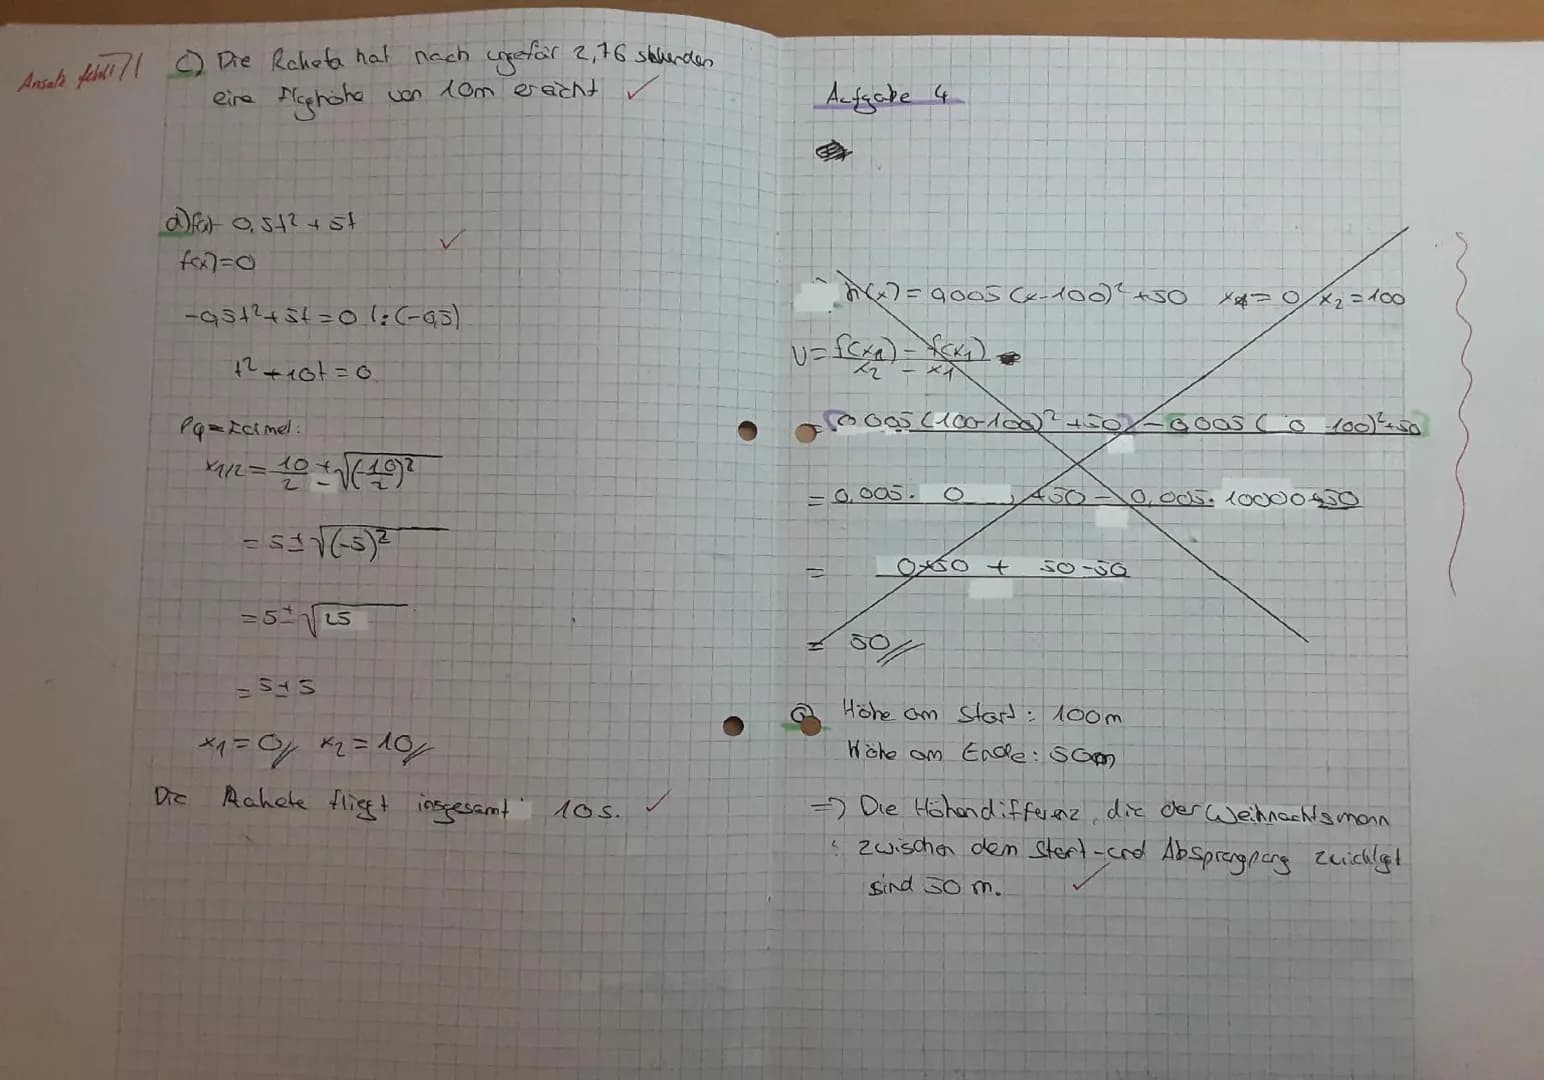 Ansatz fehlt 7/
c) Die Raketa hat nach ugefär 2,76 sekunden
eine Flughöhe von 10m ereicht ✓
d) f(x)= 0,5t² + 5t
✓
f(x)=0
-0,5t²+5t=0 |:(-0,5)
t²+10t=0
Pq=Formel:
x1/2 = 10/2 ± √(10/2)²
= 5±√(-5)²
= 5±√25
= 5±5
x1=0// x2=10//
Die Rakete fliegt insgesamt 10s. ✓
Aufgabe 4
h(x)=0,005(x-100)²+50 x1=0 x2=100
U= f(x2)-f(x1) / x2-x1
= (0,005(100-100)²+50)-0,005(0-100)²+50
= 0,005·0+50-0,005·10000+50
= 0+50+50-50
= 50//
a) Höhe am Start: 100m
Höhe am Ende: 50m
=> Die Höhendifferenz, die der Weihnachtsmann
zwischen dem Start-und Absprengpang zurücklgt
sind 50 m. ✓